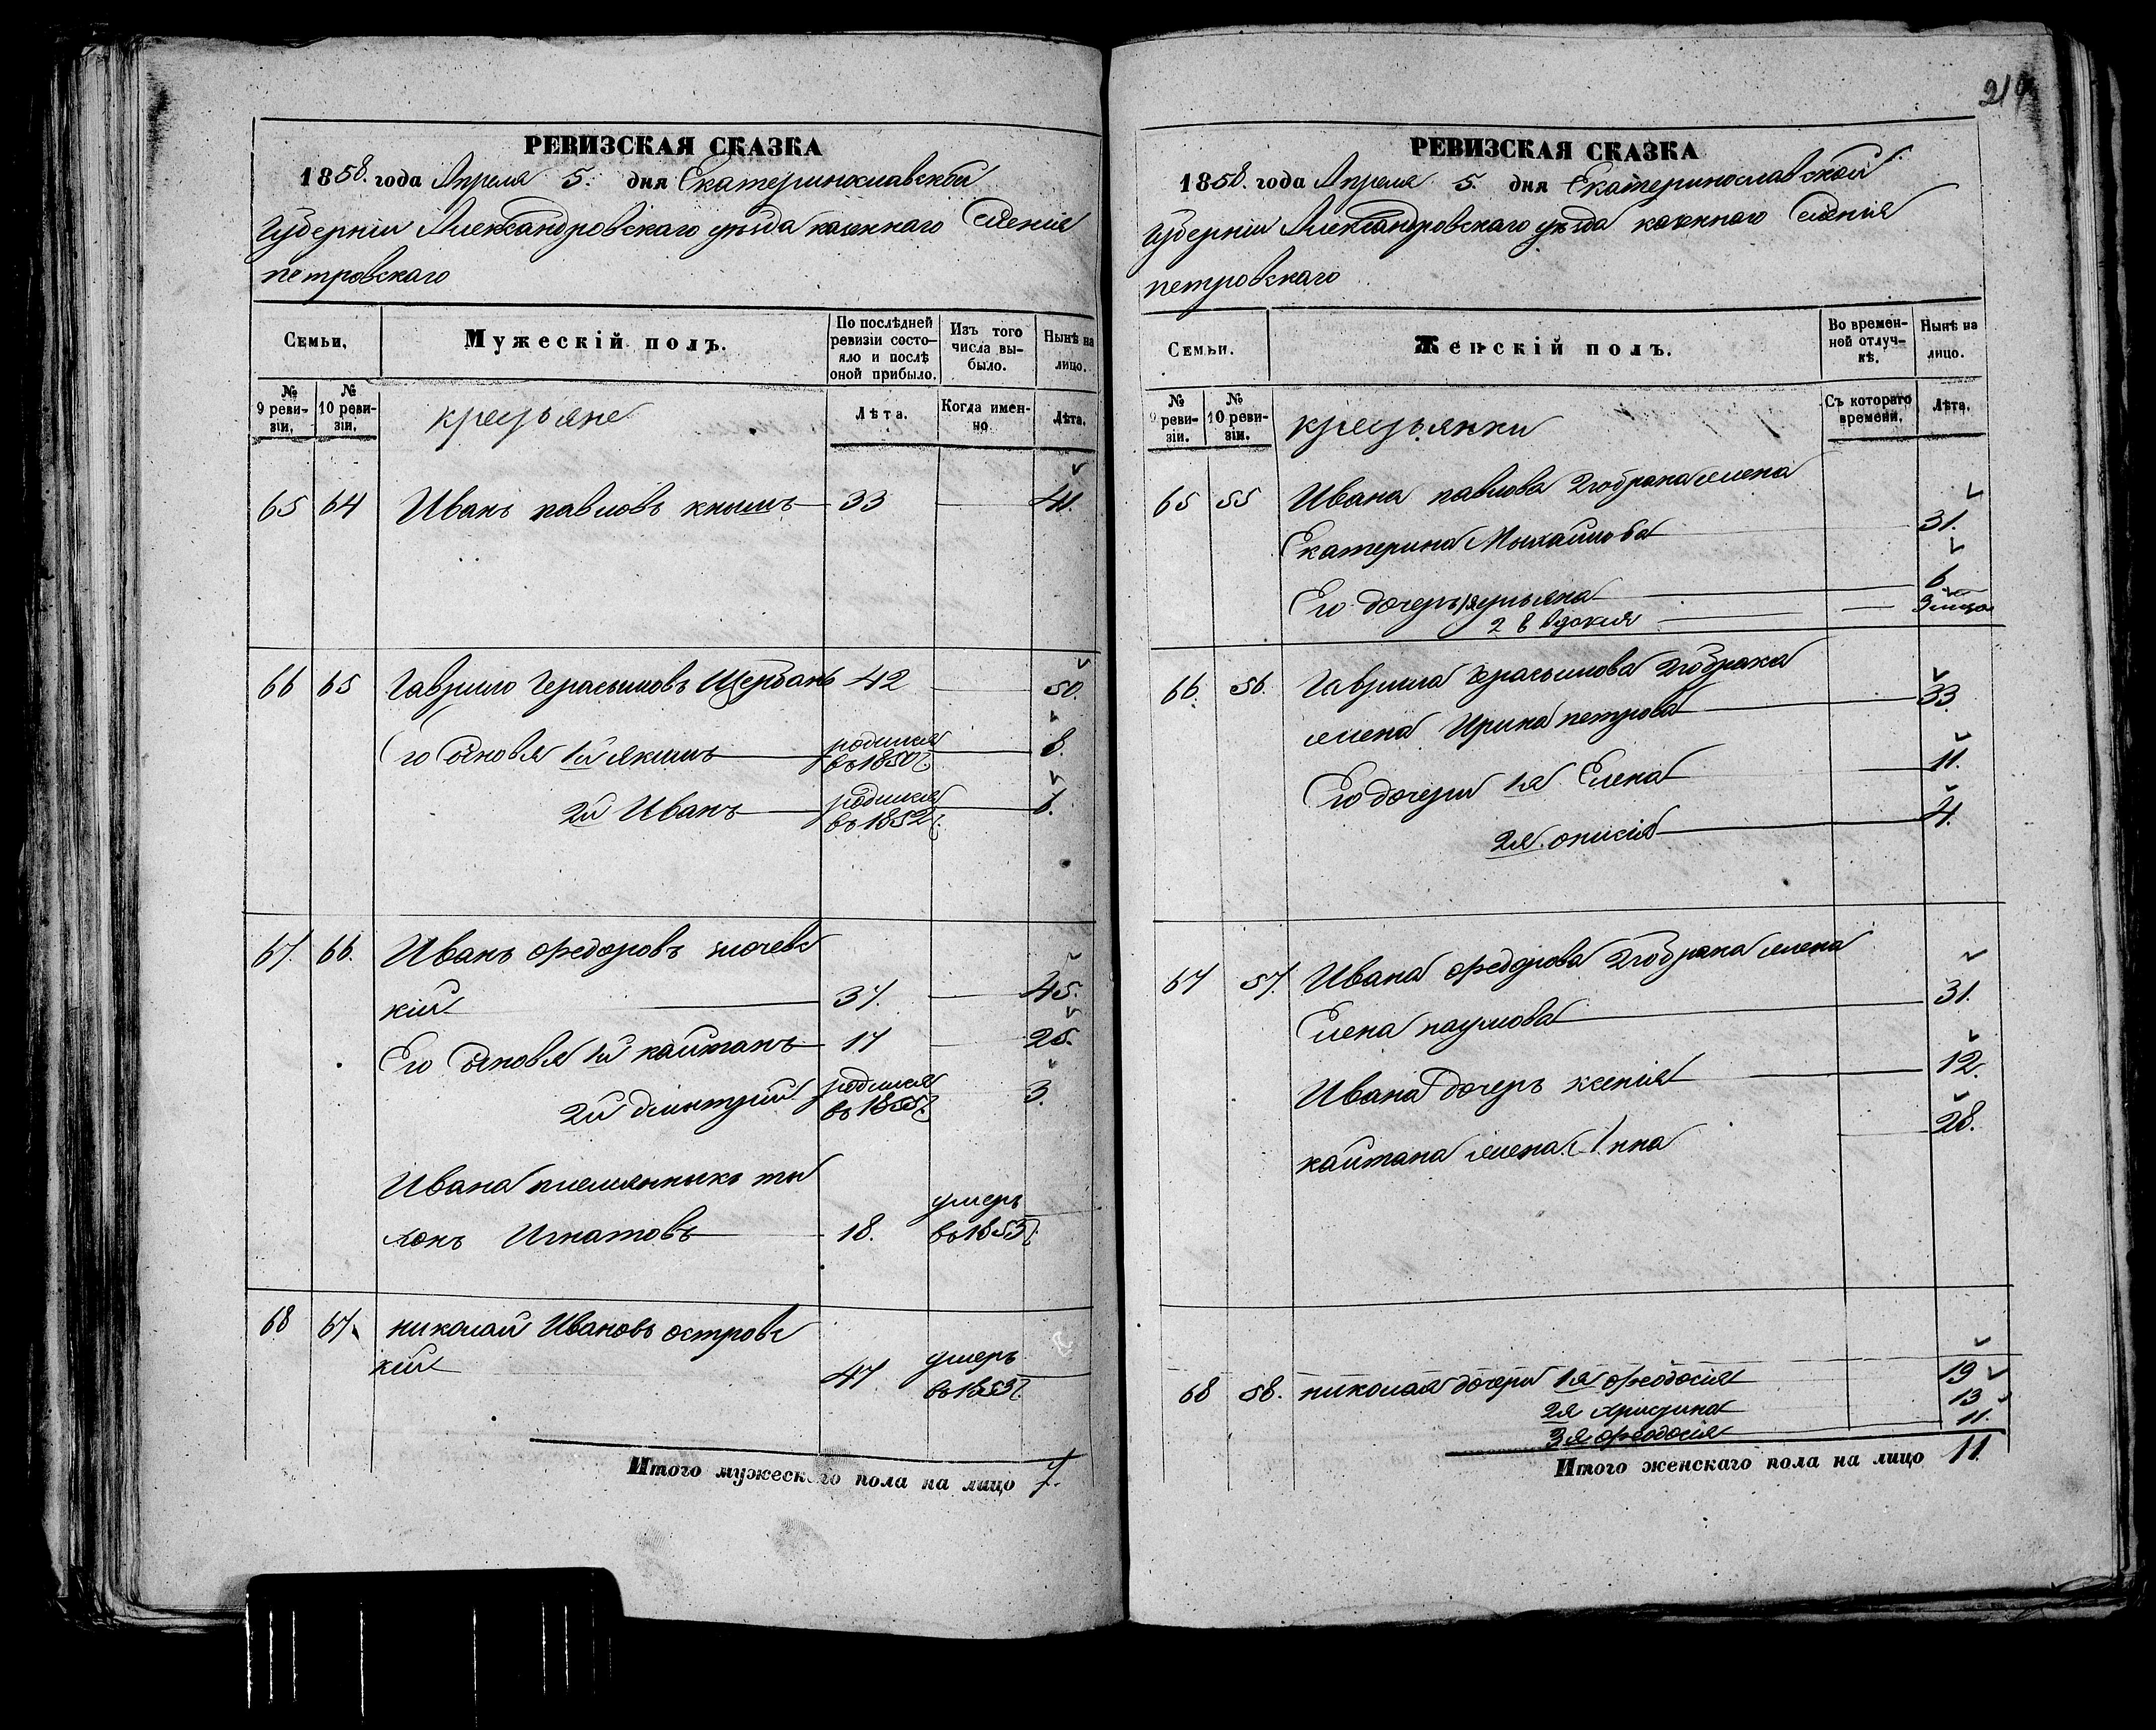 219
РЕВИЗСКАЯ СКАЗКА
1858. года Апреля 5. дня Екатеринославской
Губерніи Александровскаго уѣзда казеннаго Селенія
петровскаго
Семьи.
Мужескій полъ.
По послѣдней ревизіи состояло и послѣ оной прибыло.
Изъ того числа выбыло.
Нынѣ на лицо.
№ 9 ревизіи.
№ 10 ревизіи.
крестьяне
Лѣта.
Когда именно
Лѣта.
65 64 Иванъ павловъ 33 41.
66 65 Гаврило Герасымовъ Щербань 42 50.
Его Сыновья 1й якимъ родился въ 1850г. 8.
2й Иванъ родился въ 1852г. 6.
67. 66. Иванъ Федоровъ
кій 37. 45.
Его Сыновья 1й каитанъ 17 25.
2й дмитрий родился въ 1855г. 3.
Ивана племянныкъ ты
хонъ Игнатовъ 18. умеръ въ 1853г.
68 67. николай Ивановъ островс
кій 47 умеръ въ 1853г.
Итого мужескаго пола на лицо 7.
РЕВИЗСКАЯ СКАЗКА
1858. года Апреля 5. дня Екатеринославской
Губерніи Александровскаго уѣзда казеннаго Селенія
петровскаго
Семьи.
Женскій полъ.
Во временной отлучкѣ.
Нынѣ на лицо.
№ 9 ревизіи.
№ 10 ревизіи.
крестьянки
Съ котораго времени.
Лѣта.
65 55 Ивана павлова 2го брака жена
Екатерина Мыхайлова 31.
Его дочеръ 6
2 Евдокия 3 месяца
66. 56. Гаврила Герасымова 2го брака
жена Ирина петрова 33
Его дочери 1я Елена 11.
2я. 4.
67 57. Ивана Федорова 2го брака жена
Елена наумова 31.
Ивана дочеръ ксения 12.
каитана жена Анна 28.
68 58. николая дочери 1я Феодосия 19
2я христина 13
3я Феодосия 11.
Итого женскаго пола на лицо 11.